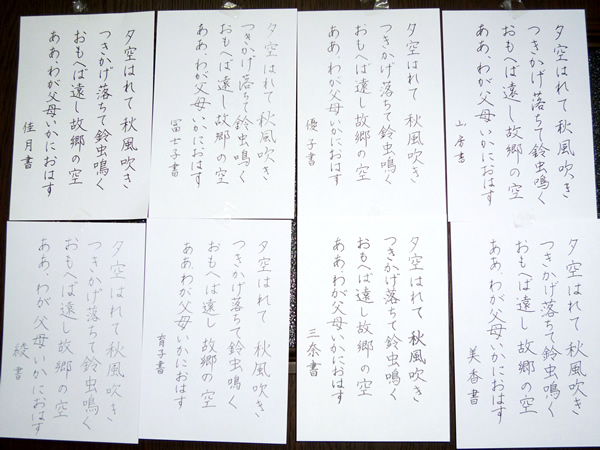 夕空はれて 秋風吹き
つきかげ落ちて鈴虫鳴く
おもへば遠し故郷の空
ああ、わが父母いかにおはす
山房書
夕空はれて 秋風吹き
つきかげ落ちて鈴虫鳴く
おもへば遠し故郷の空
ああ、わが父母いかにおはす
優子書
夕空はれて 秋風吹き
つきかげ落ちて鈴虫鳴く
おもへば遠し故郷の空
ああ、わが父母いかにおはす
冨士子書
夕空はれて 秋風吹き
つきかげ落ちて鈴虫鳴く
おもへば遠し故郷の空
ああ、わが父母いかにおはす
佳月書
夕空はれて 秋風吹き
つきかげ落ちて鈴虫鳴く
おもへば遠し 故郷の空
ああ、わが父母いかにおはす
美香書
夕空はれて 秋風吹き
つきかげ落ちて鈴虫鳴く
おもへば遠し 故郷の空
ああ、わが父母いかにおはす
三奈書
夕空はれて 秋風吹き
つきかげ落ちて鈴虫鳴く
おもへば遠し 故郷の空
ああ、わが父母いかにおはす
育子書
夕空はれて 秋風吹き
つきかげ落ちて鈴虫鳴く
おもへば遠し 故郷の空
ああ、わが父母いかにおはす
綾書